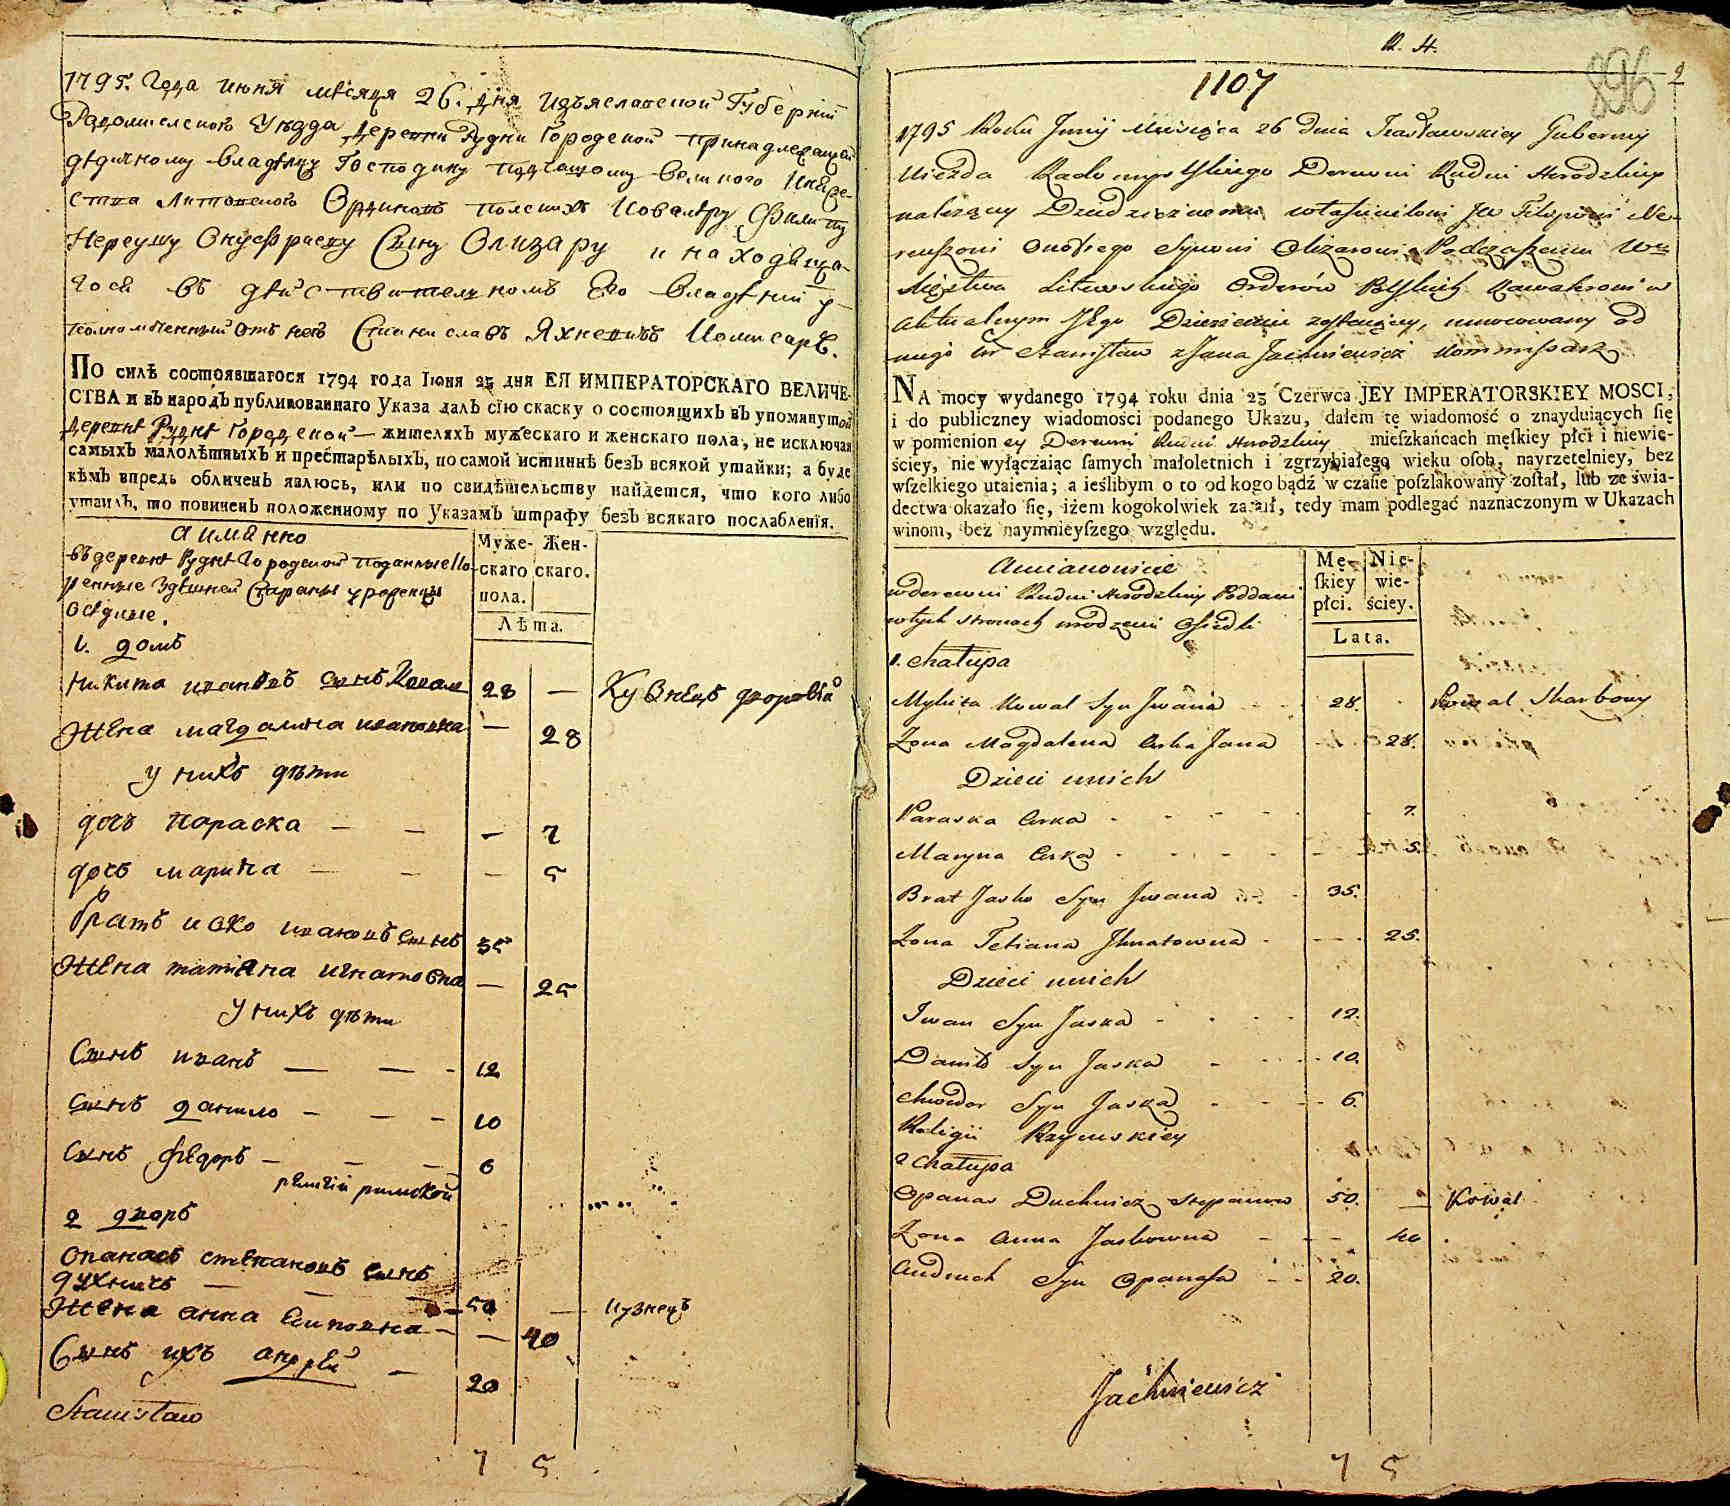 1795. Года июня месяця 26. дня Изъяславской Губернiи
Радомысленского Уезда деревни Рудни Городской принадлежащей
дедичному владелцу Господину подчашому великого Княже-
ства Литовского Орденовъ полскихъ Кавалеру Филипу
Нереушу Онуфриеву Сыну Олизару и находяща-
гося въ действителномъ Его владенiи у-
полномоченный отъ него Станиславъ Яхневичъ Комисаръ.
По силѣ состоявшагося 1794 года Iюня 23 дня ЕЯ ИМПЕРАТОРСКАГО ВЕЛИЧЕ-
СТВА и въ народъ публикованнаго Указа далъ сiю скаску о состоящихъ въ упомянутой
деревне Рудне Городской — жителяхъ мужескаго и женскаго пола, не исключая
самыхъ малолѣтныхъ и престарѣлыхъ, по самой истиннѣ безъ всякой утайки; а буде
кѣмъ впредь обличенъ явлюсь, или по свидѣтельству найдется, что кого либо
утаилъ, то повиненъ положенному по Указамъ штрафу безъ всякаго послабленiя.
а имянно
въ деревне Рудне Городской подданные
здешней Стараны уроженцы
оседлые.
Муже-
скаго
пола.
Жен-
скаго.
Лѣта.
1. домъ
никита ивановъ сынъ Коваль 28 — Кузнецъ дворовый
жена магдалина ивановна — 28
у нихъ дети
дочь параска — — — 7
дочь марина — — — 5
братъ иско ивановъ сынъ 35
жена татiяна игнатовна — 25
у нихъ дети
Сынъ иванъ — — - 12
Сынъ данило — — - 10
Сынъ федоръ — — — 6
религiи римской
2 дворъ
опанасъ степановъ сынъ
духничъ — — — 50 — кузнецъ
жена анна есиповна — — 40
Сынъ ихъ андрей — 20
Stanisław
7 5
R. H.
1107
896
9
1795 Roku Junij Miesiąca 26 Dnia Izasławskiey Gubernij
Uiezda Radomyslskiego Derewni Rudni Horodzkiey
należącey Dziedzicznemu właścicielowi JW Filipowi Ne-
reuszowi Onofrego Synowi Olizarowi Podczaszemu Wgo
Xięztwa Litewskiego Orderów Polskich Kawalerowi w
aktualnym Jego Dzierżeniu zostaiącey, umocowany od
niego W Stanisław zJana Jachniewicz Kommissarz
NA mocy wydanego 1794 roku dnia 23 Czerwca JEY IMPERATORSKIEY MOSCI,
i do publiczney wiadomości podanego Ukazu, dałem tę wiadomość o znayduiących ſię
w pomienioney Derewni Rudni Horodzkiey mieſzkańcach męſkiey płci i niewie-
ściey, nie wyłączaiąc ſamych małoletnich i zgrzybiałego wieku oſob, nayrzetelniey, bez
wſzelkiego utaienia; a ieślibym o to od kogo bądź w czaſie poſzlakowany zoſtał, lub ze świa-
dectwa okazało ſię, iżem kogokolwiek zataił, tedy mam podlegać naznaczonym w Ukazach
winom, bez naymnieyſzego względu.
Amianowicie
wderewni Rudni Horodzkiey Poddani
wtych stronach urodzeni Osiedli
Mę-
ſkiey
płci.
Nie-
wie-
ściey.
Lata.
1. Chałupa
Mykita Kowal Syn Jwana 28. Kowal Skarbowy
Żona Magdalena Corka Jana 28.
Dzieci unich
Paraska Corka 7.
Maryna Corka 5.
Brat Jasko Syn Jwana 35.
Żona Tetiana Jhnatowna 25.
Dzieci unich
Iwan Syn Jaska 12.
Daniło Syn Jaska 10.
Chwedor Syn Jaska 6.
Religii Rzymskiey
2 Chałupa
Opanas Duchnicz Stepanow 50. — Kowal
Żona Anna Jaskowna 40
Andruch Syn Opanasa 20.
Jachniewicz
7 5